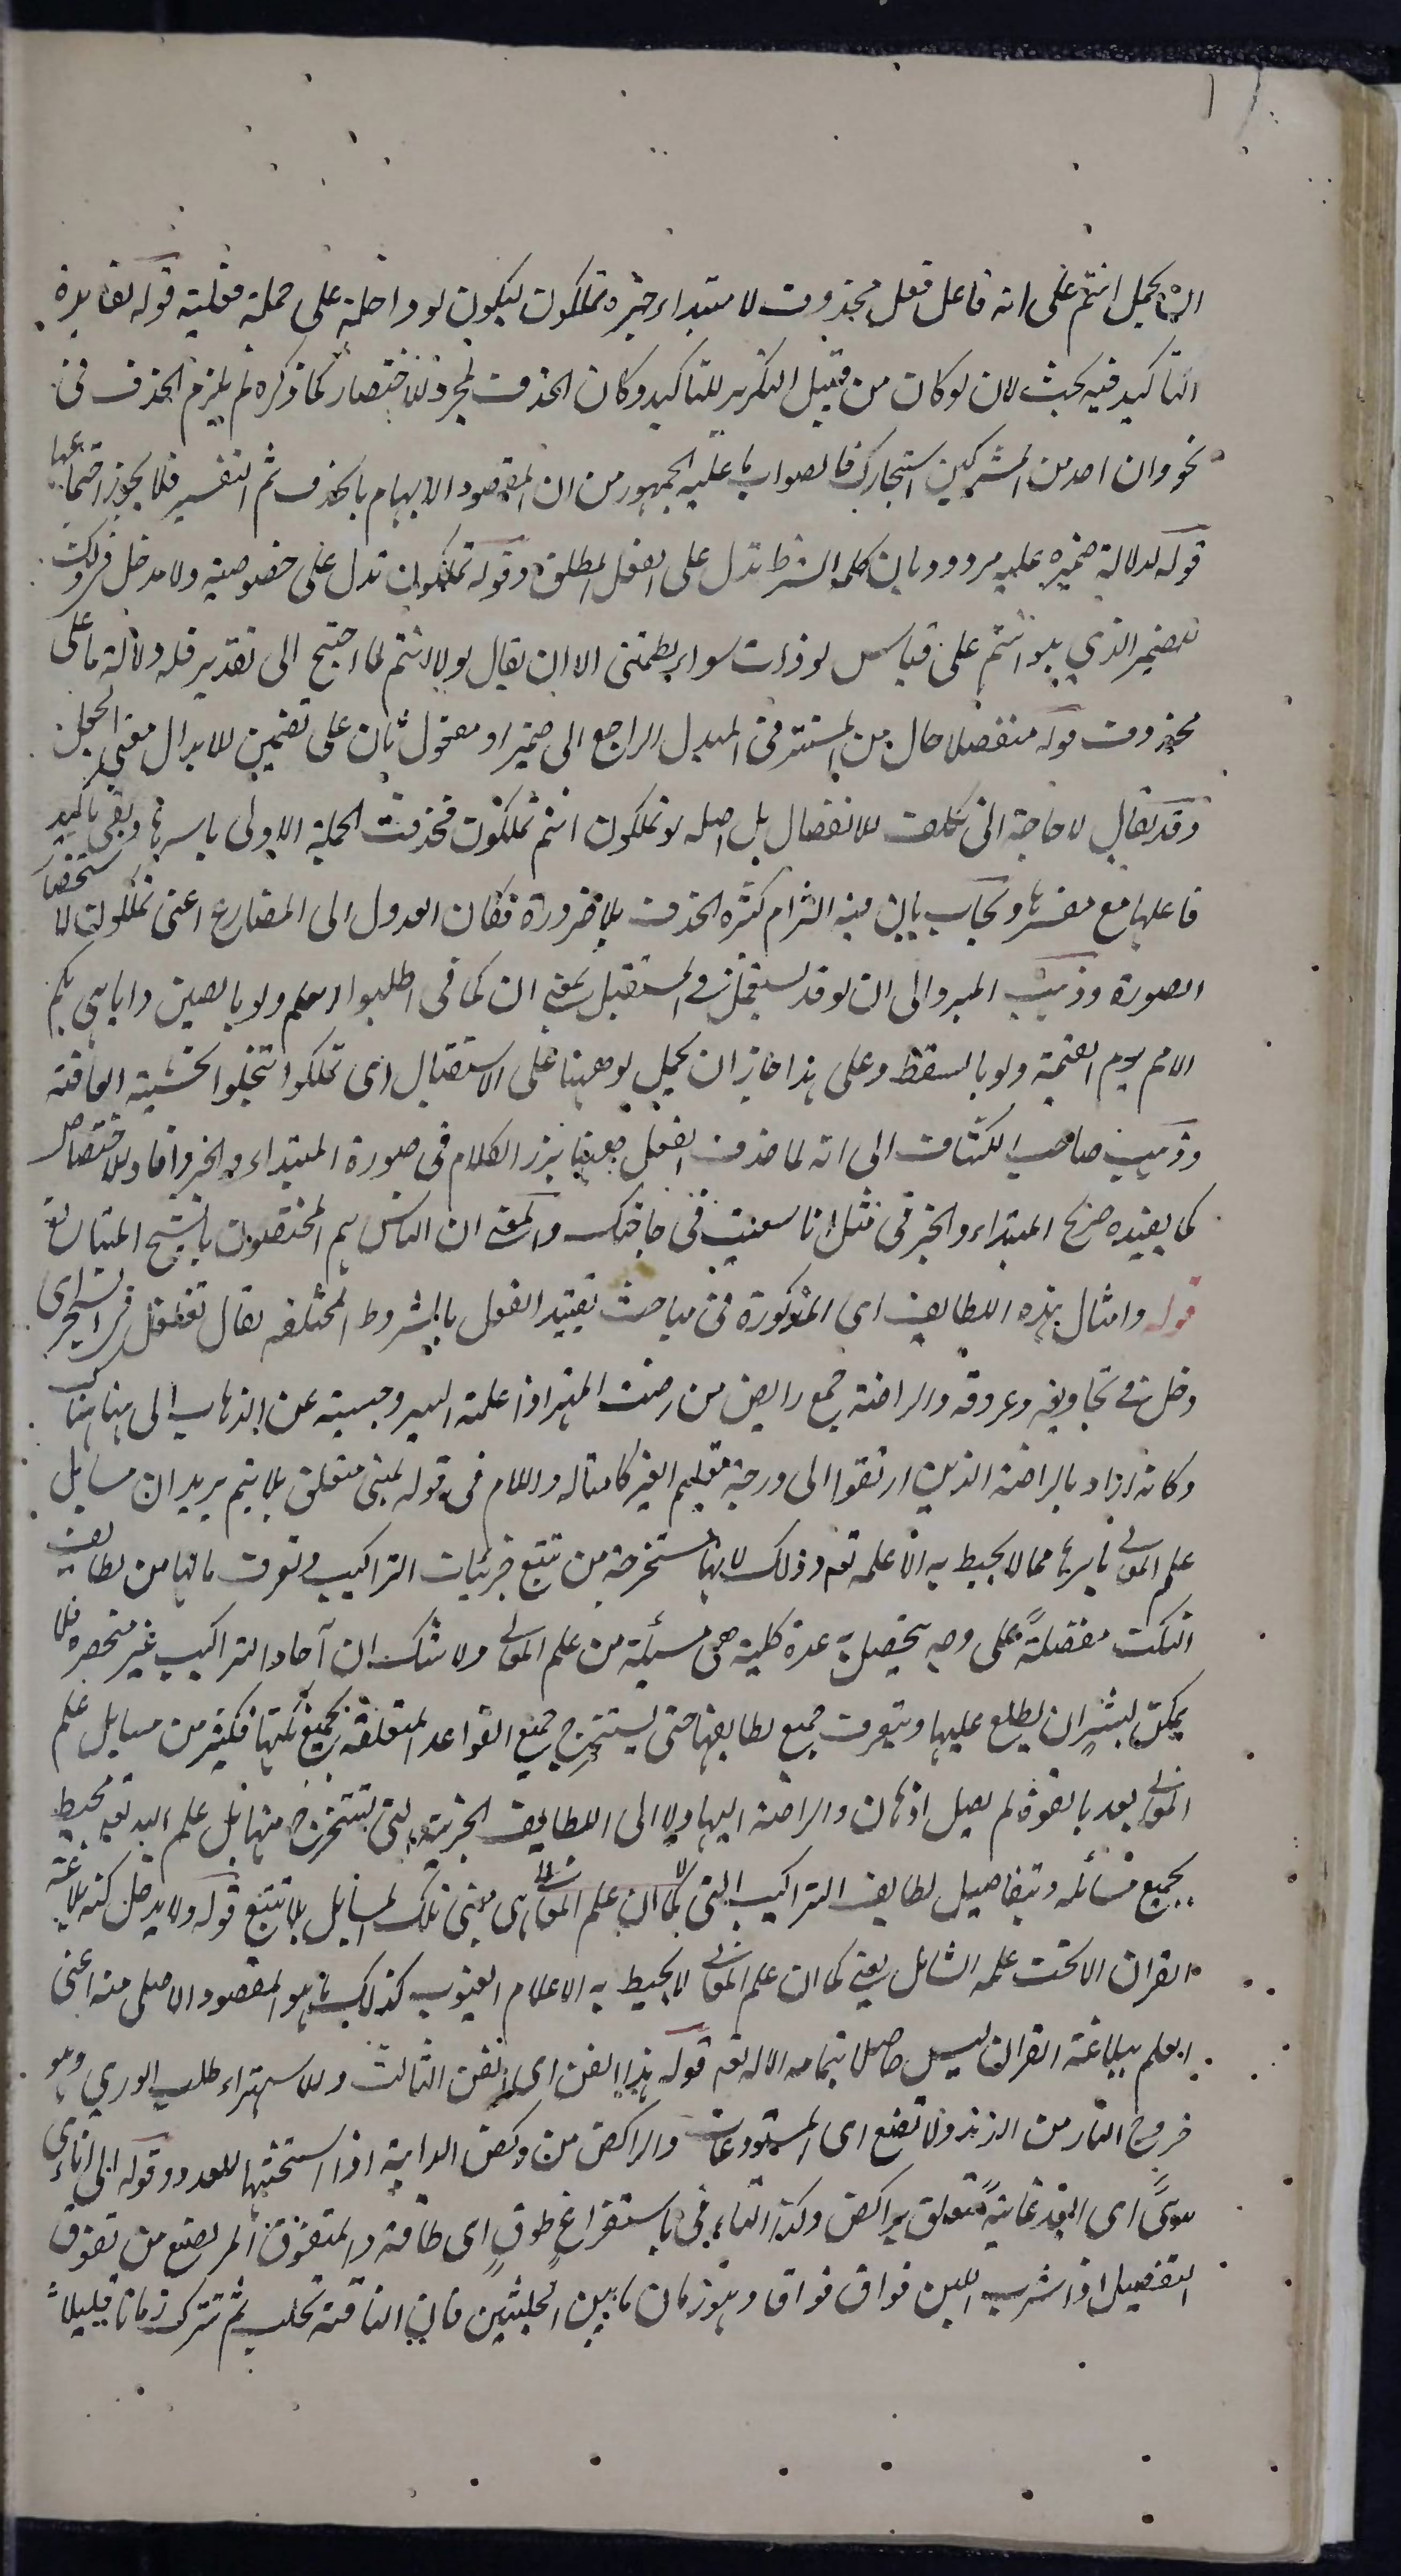 ان يحمل انتم على انه فاعل فعل محذوف لا مبتداء خبره تملكون ليكون لو داخلة على جملة فعلية قوله لفائدة
التاكيد فيه بحث لان لو كان من قبيل التكرير للتاكيد وكان الحذف لمجرد الاختصار كما ذكره لم يلزم الحذف في
نحو وان احد من المشركين استجارك فالصواب ما عليه الجمهور من ان المقصود الابهام بالحذف ثم التفسير فلا يجوز اجتماعهما
قوله لدلالة ضميره عليه مردود بان كلمة الشرط تدل على الفعل المطلق وقوله تملكون تدل على خصوصيته ولا مدخل في ذلك
للضمير الذي هو انتم على قياس لو ذات سوار لطمتني الا ان يقال لولا انتم لما احتيج الى تقدير فله دلالة ما على
محذوف قوله منفصلا حال من المستتر في المبدل الراجع الى ضمير او مفعول ثان على تضمين الابدال معنى الجعل
وقد يقال لا حاجة الى تكلف الانفصال بل اصله لو تملكون انتم تملكون فحذفت الجملة الاولى باسرها وبقي تاكيد
فاعلها مع مفسرها ويجاب بان فيه التزام كثرة الحذف بلا ضرورة فكان العدول الى المضارع اعني تملكون لاستحضار
الصورة وذهب المبرد الى ان لو قد يستعمل في المستقبل بمعنى ان كما في اطلبوا العلم ولو بالصين واباهي بكم
الامم يوم القيمة ولو بالسقط وعلى هذا جاز ان يحمل لو ههنا على الاستقبال اي تملكوا تبخلوا لخشية الفاقة
وذهب صاحب الكشاف الى انه لما حذف الفعل برز الكلام في صورة المبتداء والخبر وافاد الاختصاص
كما يفيده صريح المبتداء والخبر في مثل انا سعيت في حاجتك والمعنى ان الناس هم المختصون بالشح المتبالغ
قوله وامثال هذه اللطايف اي المذكورة في مباحث تقييد الفعل بالشروط المختلفة يقال تغلغل في الشجر اي
دخل في تجاويفه وعروقه والراضة جمع رايض من رضت المهر اذا علمته السير وحبسته عن الذهاب الى هنا هناك
وكانه اراد بالراضة الذين ارتقوا الى درجة تعليم الغير كامثاله واللام في قوله لمبنى متعلق بلا يتم يريد ان مسايل
علم المعاني باسرها مما لا يحيط به الا علمه تعم وذلك لانها مستخرجة من تتبع جزئيات التراكيب وتعرف ما لها من لطايف
النكت مفصلة على وجه يتحصل به عدة كلية هي مسئلة من علم المعاني ولا شك ان آحاد التراكيب غير منحصرة فلا
يمكن لبشر ان يطلع عليها ويتعرف جميع لطايفها حتى يستخرج جميع القواعد المتعلقة بجميع نكتها فكثير من مسايل علم
المعاني بعد بالقوة لم يصل اذهان والراضة اليها ولا الى اللطايف الجزئية التي يستخرج منها بل علم الله تعم محيط
بجميع مسائله وتفاصيل لطايف التراكيب التي كما ان علم المعاني هي مبنى تلك المسايل بلا تتبع قوله ولا يدخل كنه بلاغة
القران الا تحت علمه الشامل يعني كما ان علم المعاني لا يحيط به الا علام الغيوب كذلك ما هو المقصود الاصلي منه اعني
العلم ببلاغة القران ليس حاصلا بتمامه الا له تعم قوله هذا الفن اي الفن الثالث والاستهراء طلب الوري وهو
خروج النار من الزند ولا تضع اي المستودعات والراكض من ركض الدابة اذا استحثها للعدو وقوله الى اناى
سوى اى ابعد غاية متعلق براكض وكذا الباء في باستفراغ طوق اي طاقة والمتفوق المرتضع من تفوق
الفصيل اذا شرب اللبن فواق فواق وهو زمان ما بين الحلبتين فان الناقة تحلب ثم تترك زمانا قليلا